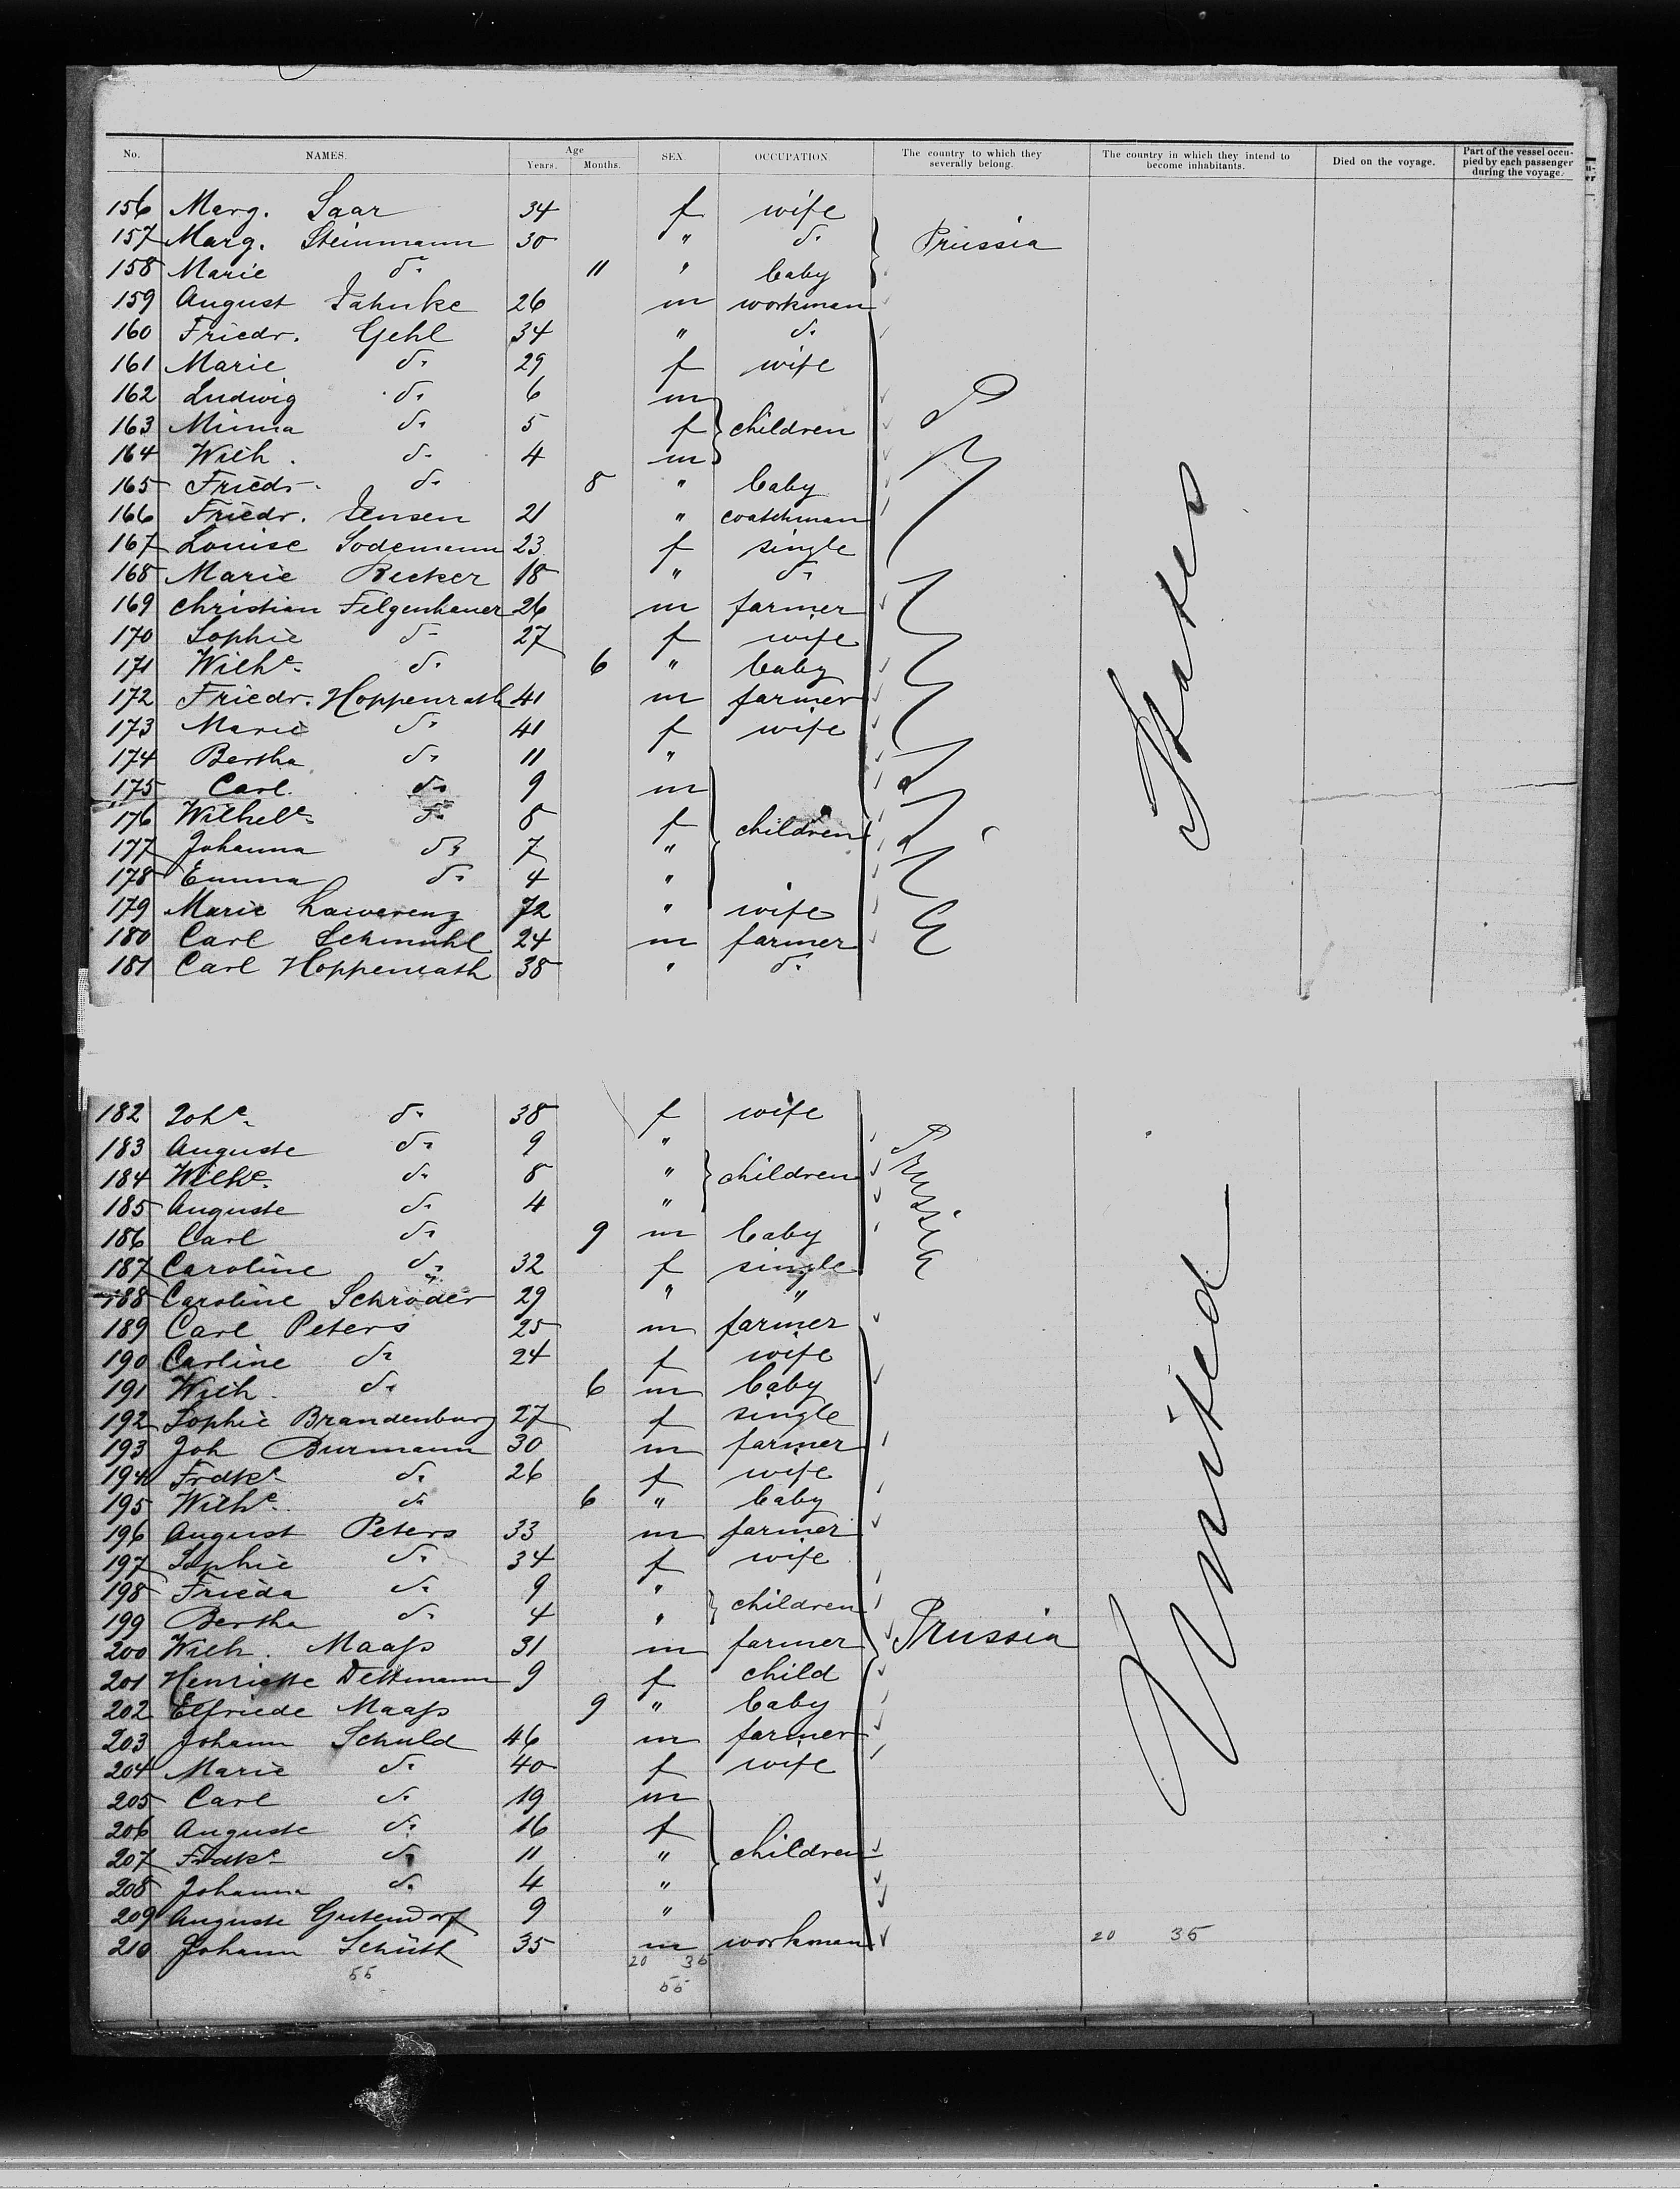 No. NAMES. Age Years. Months. SEX. OCCUPATION. The country to which they severally belong. The country in which they intend to become inhabitants. Died on the voyage. Part of the vessel occupied by each passenger during the voyage.
156 Marg. Saar 34 f wife
157 Marg. Steinmann 30 " do. Prussia
158 Marie do. 11 " baby
159 August Jahnke 26 m workman
160 Friedr. Gehl 34 " do.
161 Marie do. 29 f wife
162 Ludwig do. 6 m
163 Minna do. 5 f children
164 Wilh. do. 4 m
165 Friedr. do. 8 " baby
166 Friedr. Jensen 21 " coatchman
167 Louise Sodemann 23 f single
168 Marie Becker 18 " do.
169 Christian Felgenhauer 26 m farmer
170 Sophie do. 27 f wife
171 Wilhe. do. 6 " baby
172 Friedr. Hoppenrath 41 m farmer
173 Marie do. 41 f wife
174 Bertha do. 11 "
175 Carl do. 9 m
176 Wilhele. do. 8 f children
177 Johanna do. 7 "
178 Emma do. 4 "
179 Marie Lawerenz 72 " wife
180 Carl Schmuhl 24 m farmer
181 Carl Hoppenrath 38 " do.
182 Johe. do. 38 f wife
183 Auguste do. 9 "
184 Wilhe. do. 8 " children
185 Auguste do. 4 "
186 Carl do. 9 m baby
187 Caroline do. 32 f single
188 Caroline Schröder 29 " "
189 Carl Peters 25 m farmer
190 Carline do. 24 f wife
191 Wilh. do. 6 m baby
192 Sophie Brandenburg 27 f single
193 Joh Burmann 30 m farmer
194 Frdke. do. 26 f wife
195 Wilhe. do. 6 " baby
196 August Peters 33 m farmer
197 Sophie do. 34 f wife
198 Frieda do. 9 "
199 Bertha do. 4 " children
200 Wilh. Maaſs 31 m farmer Prussia
201 Henriette Dettmann 9 f child
202 Elfriede Maaſs 9 " baby
203 Johann Schuld 46 m farmer
204 Marie do. 40 f wife
205 Carl do. 19 m
206 Auguste do. 16 f
207 Frdke. do. 11 " children
208 Johanna do. 4 "
209 Auguste Gutendorf 9 "
210 Johann Schütt 35 m workman 20 35
55 20 35
55
Prussia
Prussia
United States